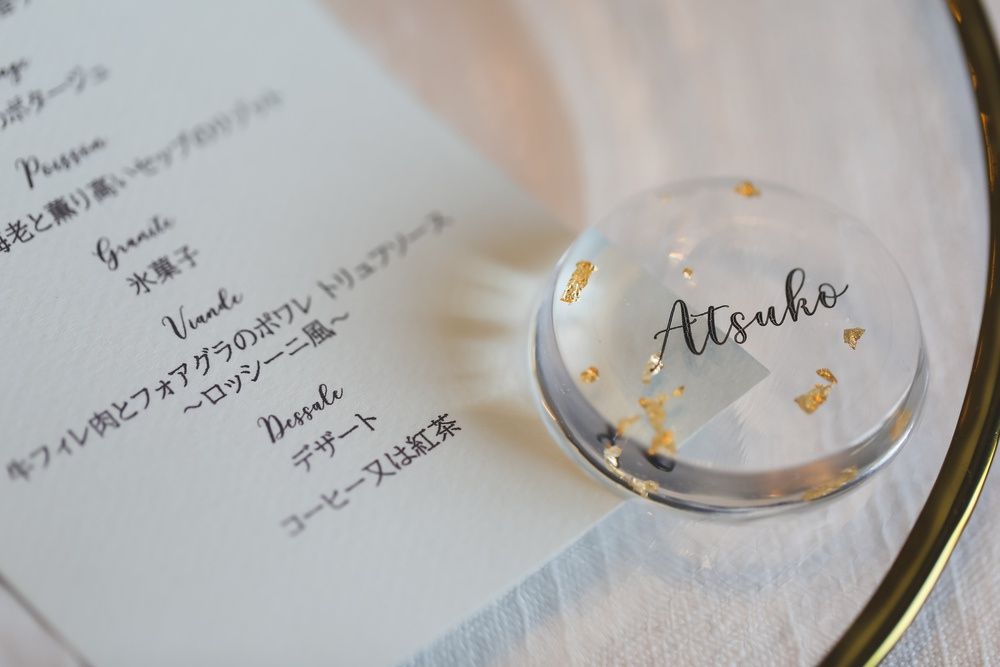 のポタージュ
Poisson
老と薫り高いセップのリゾット
Granite
氷菓子
Viande
牛フィレ肉とフォアグラのポワレ トリュフソース
～ロッシーニ風～
Dessale
デザート
コーヒー又は紅茶
Atsuko